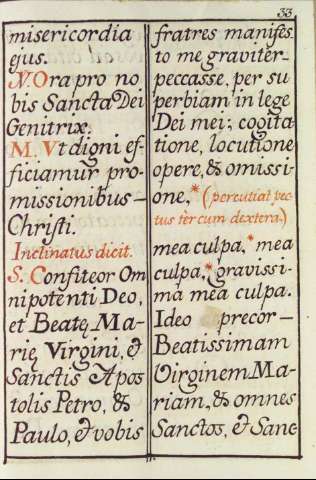 33
misericordia
ejus.
N. Ora pro no
bis Sancta Dei
Genitrix.
M. Vt digni ef-
ficiamur pro-
missionibus—
Christi.
Inclinatus dicit.
S. Confiteor Om
nipotenti Deo,
et Beatę Ma-
rię Virgini, &
Sanctis Apos
tolis Petro, &
Paulo, & vobis
fratres manifes.
to me graviter-
peccasse, per su
perbiam in lege
Dei mei; cogita
tione, locutione
opere, & omissi
one,* (percutiat pec
tus tèr cum dextera.)
mea culpa,* mea
culpa,* gravissi-
ma mea culpa.
Ideo precor—
Beatissimam
Virginem Ma-
riam, & omnes
Sanctos, & Sanc